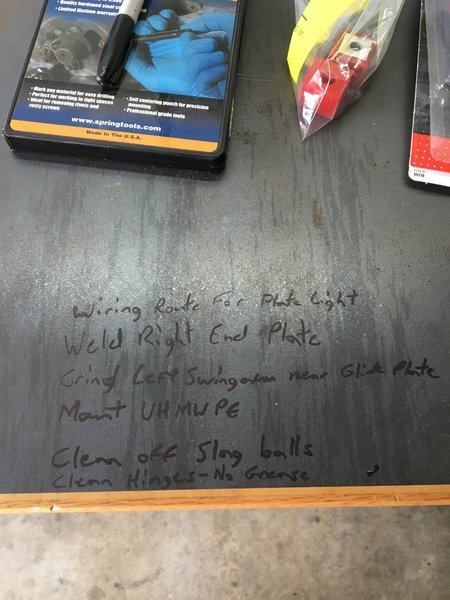 • Quality hardened steel
• Limited lifetime warranty
• Mark any material for easy drilling
• Perfect for working in tight spaces
• Ideal for removing rivets and
rusty screws
• Self centering punch for precision
mounting
• Professional grade tools
www.springtools.com
Made In The U.S.A.
Wiring Route For Plate Light
Weld Right End Plate
Grind Left Swingarm near Glide Plate
Mount UHMWPE
Clean off Slag balls
Clean Hinges - No Grease